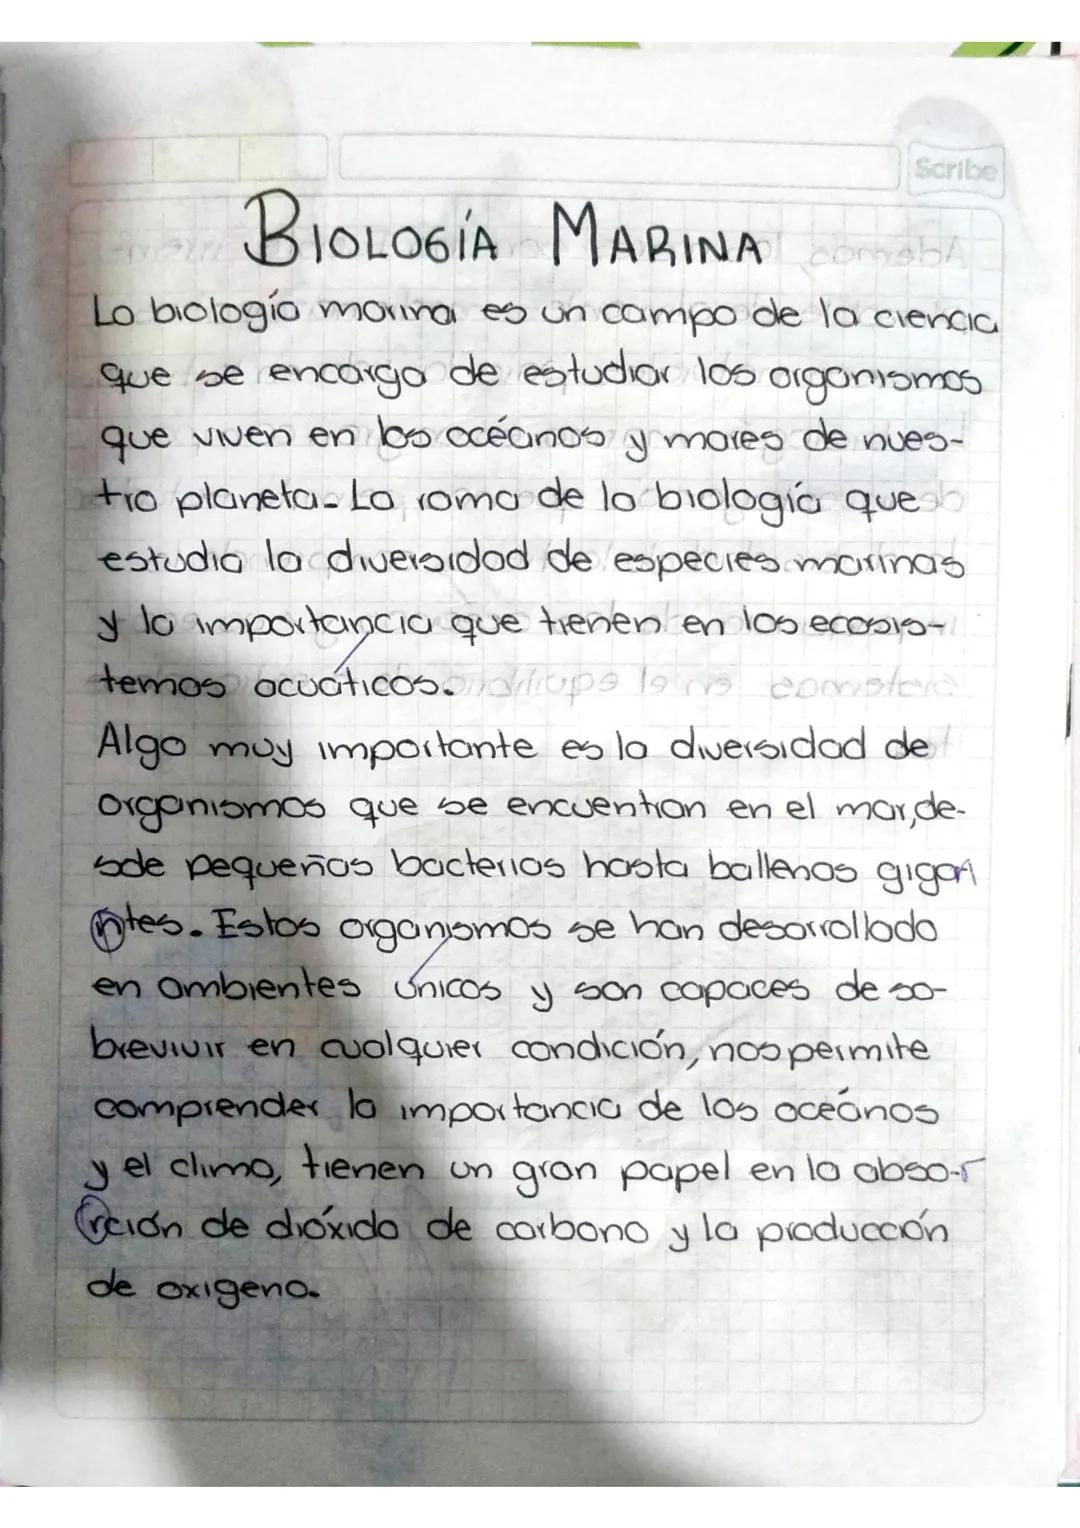 Scribe
BIOLOGÍA MARINA
La biología marina es un campo de la ciencia
que se encarga de estudiar los organismos
que viven en los océanos y mares de nues-
tro planeta. La rama de la biología que
estudia la diversidad de especies marinas
y la importancia que tienen en los ecosis-
temas acuáticos.
Algo muy importante es la diversidad de
organismos que se encuentran en el mar, de-
sde pequeñas bacterias hasta ballenas gigan
ntes. Estos organismos se han desarrollado
en ambientes únicos y son capaces de so-
brevivir en cualquier condición, nos permite
comprender la importancia de los oceános
y el clima, tienen un gran papel en la abso-r
rción de dióxido de carbono y la producción
de oxigeno.